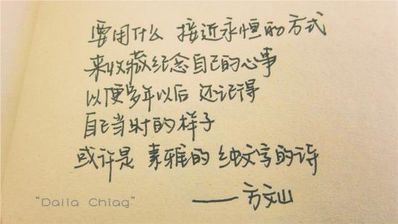 要用什么 接近永恒的方式
来收藏纪念自己的心事
以便多年以后 还记得
自己当时的样子
或许是 素雅的 纯文字的诗
——方文山
"Daila Chiag"